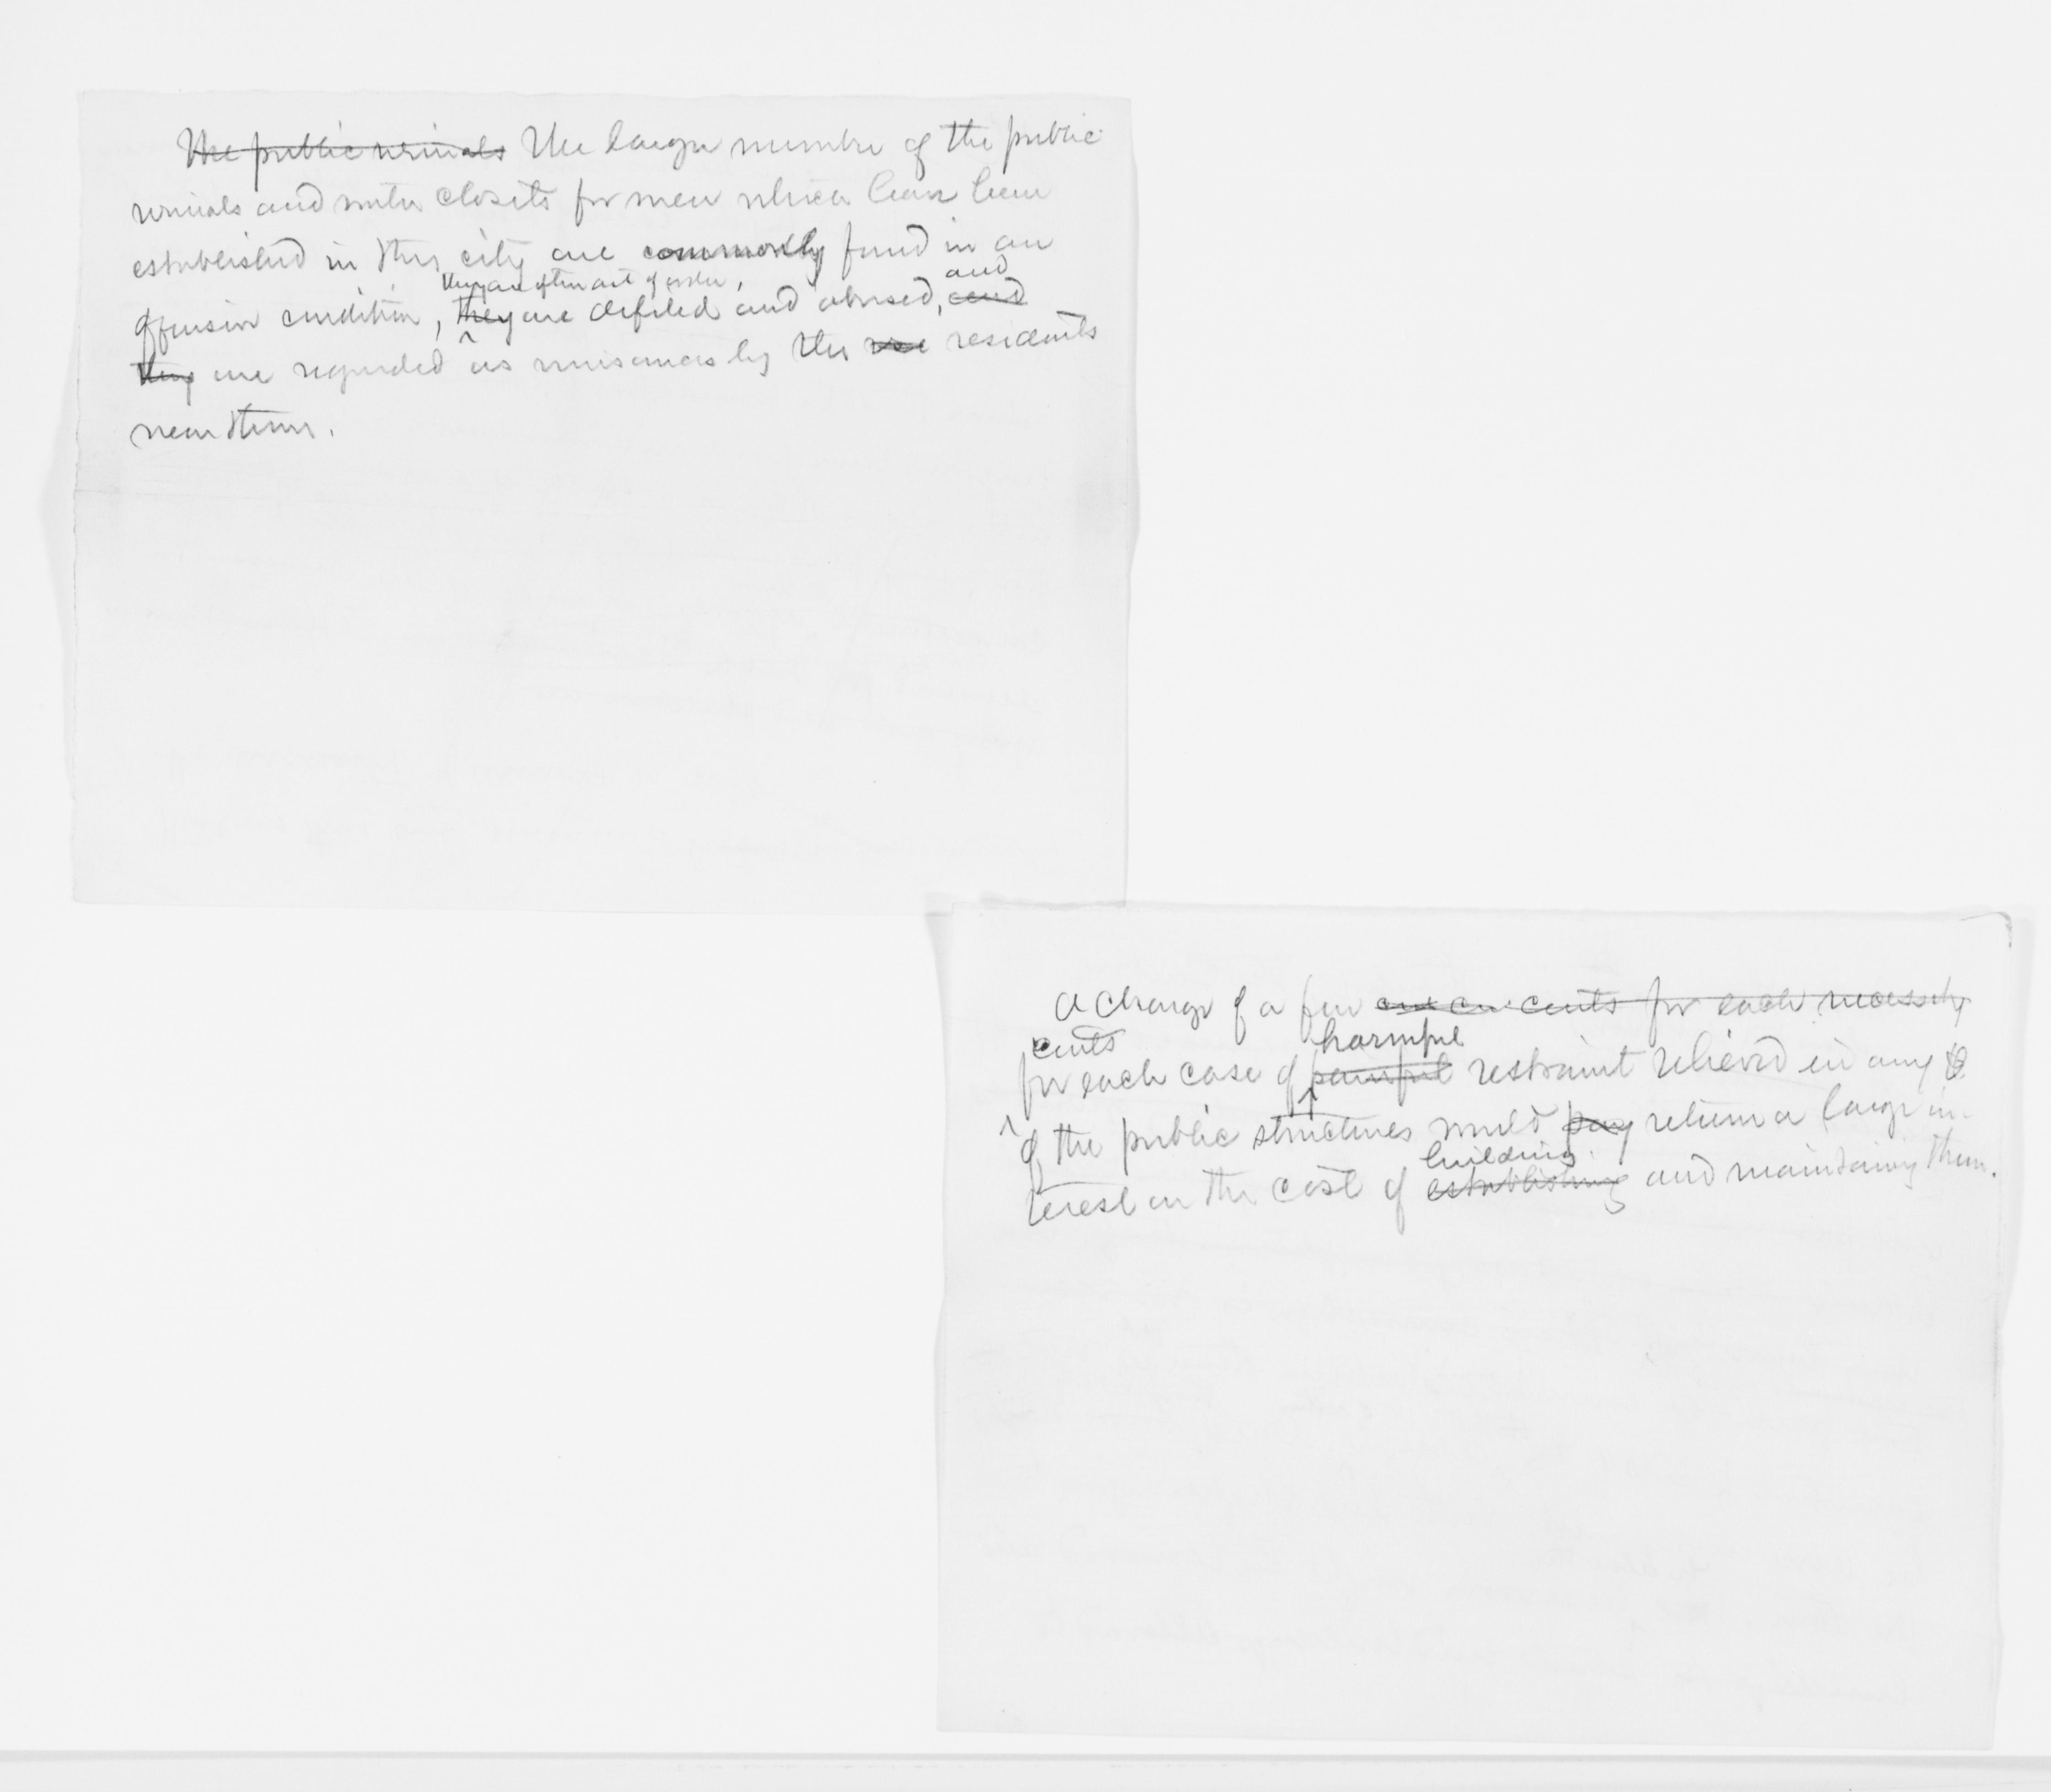 The public urinals The larger number of the public
urinals and water closets for men which have been
established in this city are commonly found in an
they are often out of order, and
offensive condition, they are defiled and abused, and
they are regarded as nuisances by the residents
near them.
A charge of a few cents for each necessity
cents harmful
for each case of painful restraint relieved in any
of the public structures would pay return a large in-
building
terest on the cost of establishing and maintaining them.